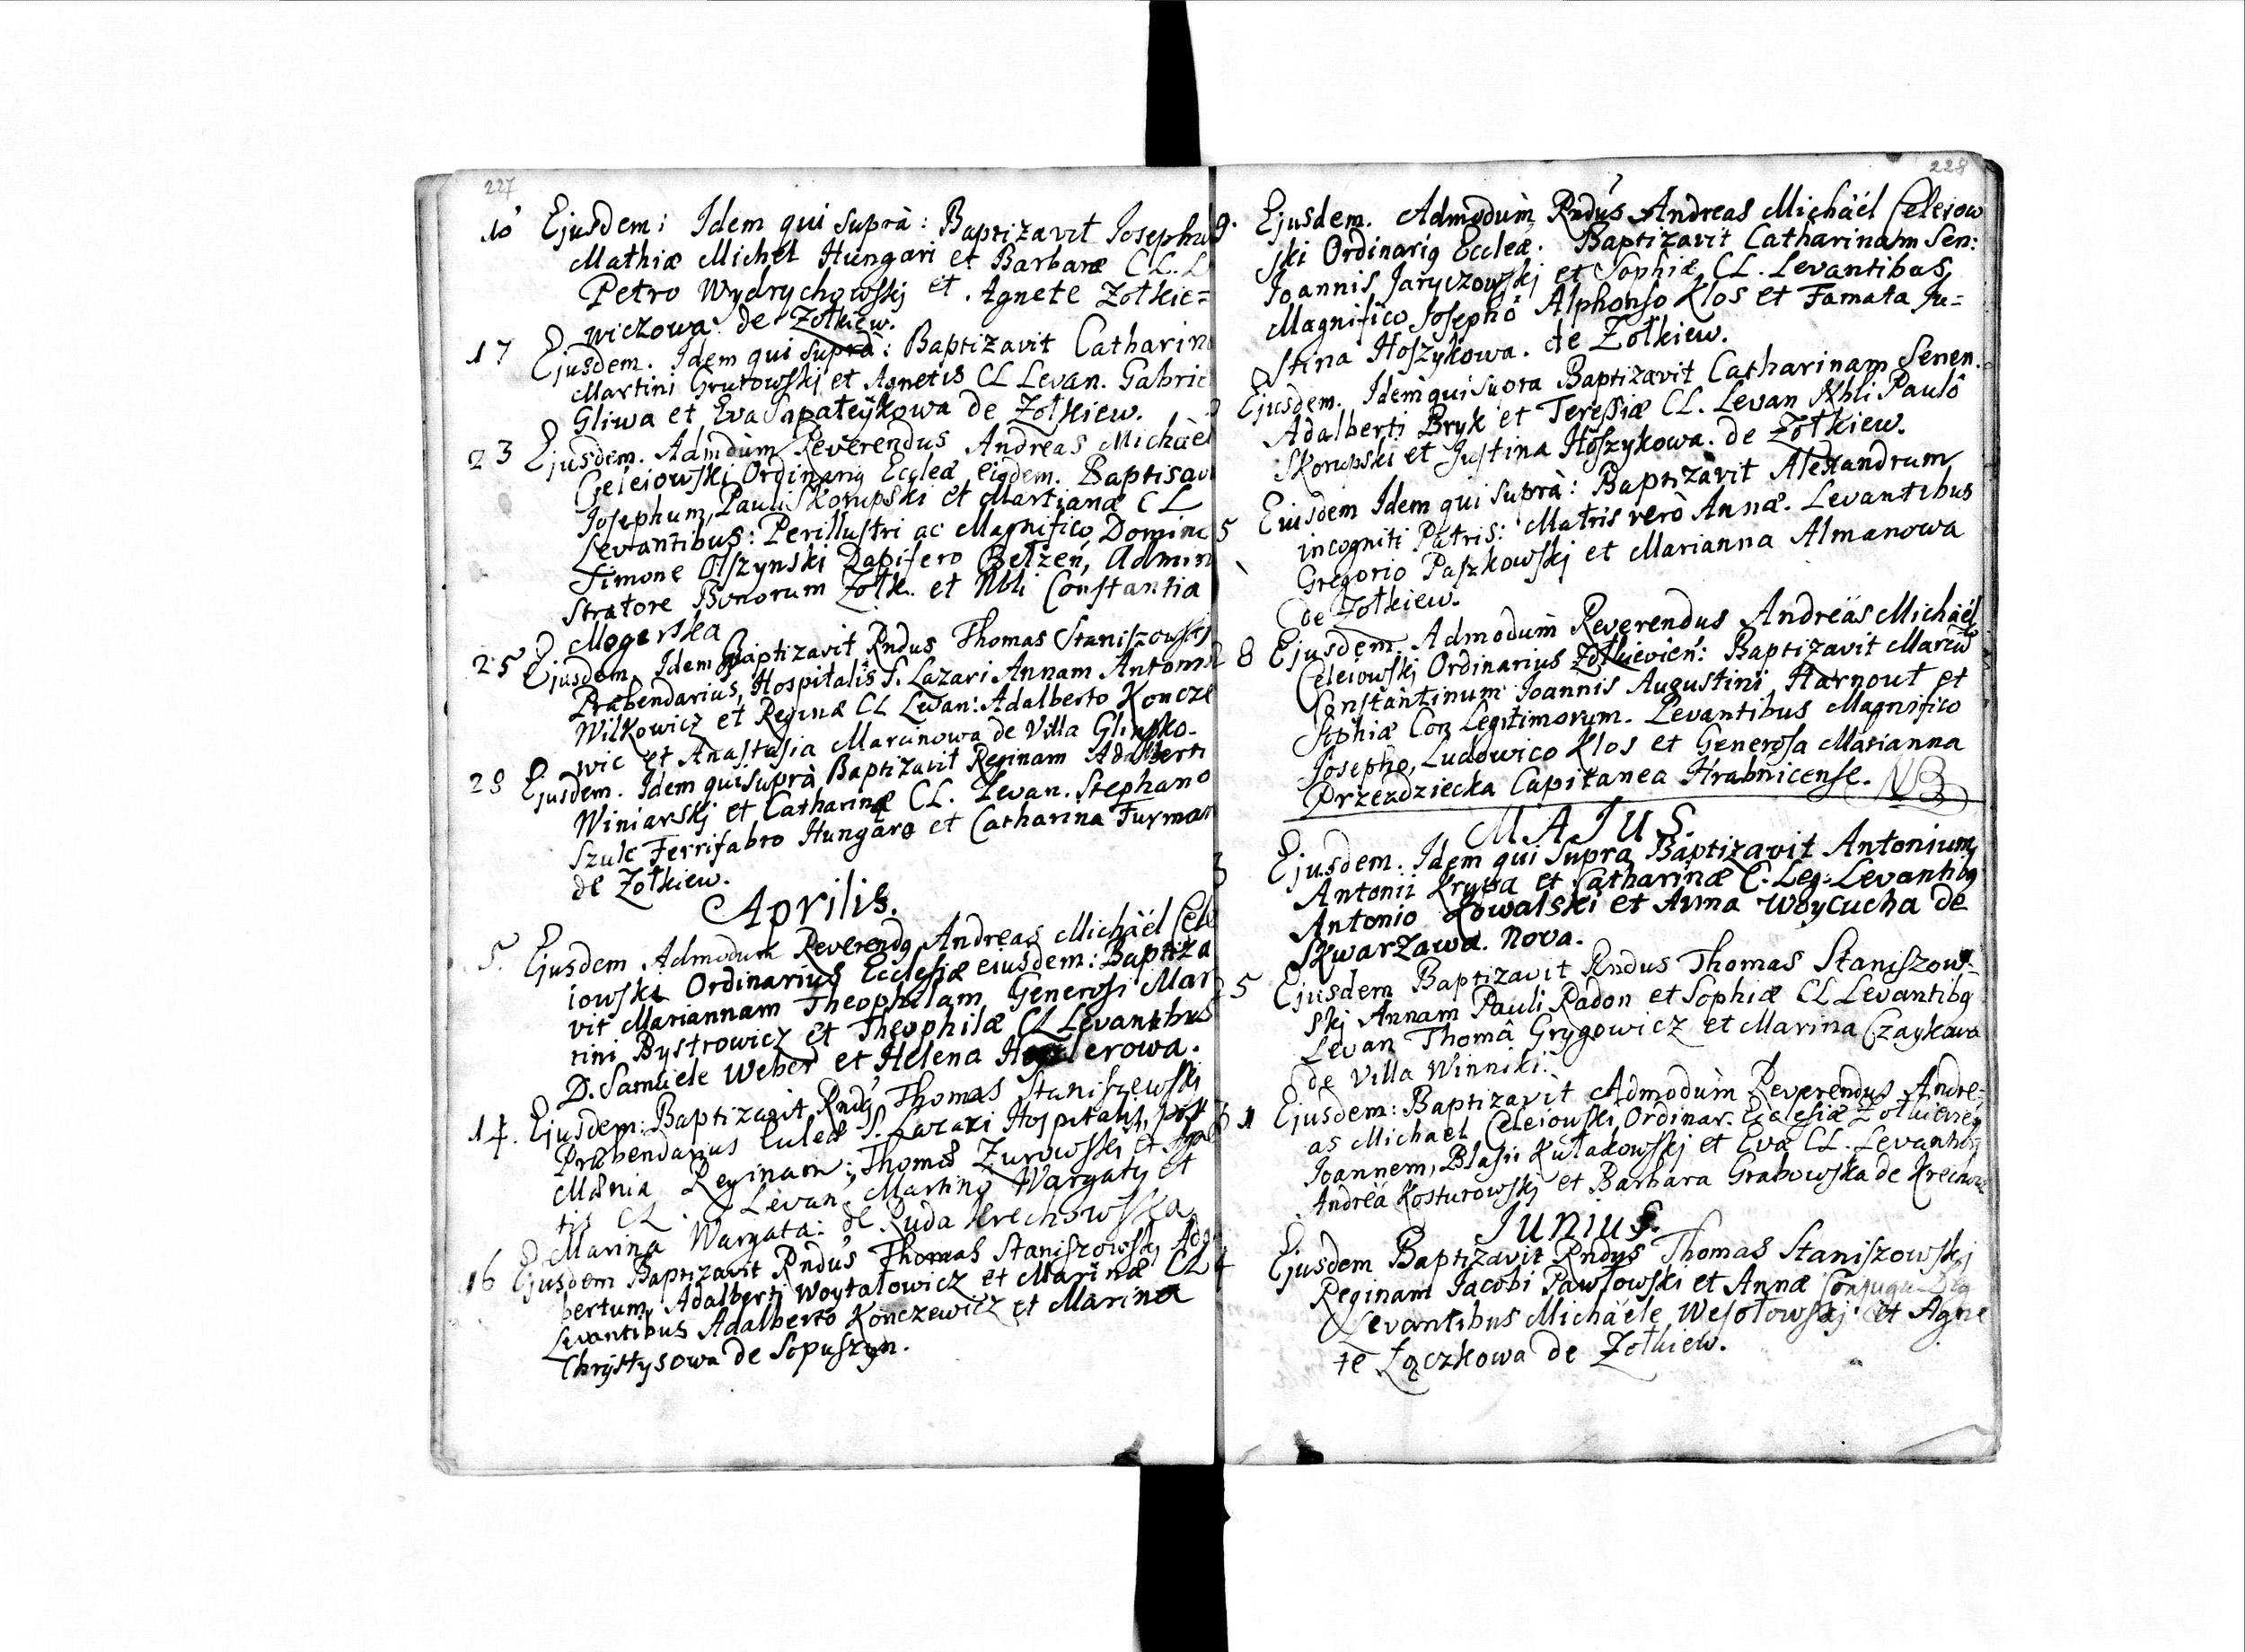 227
10 Ejusdem: Idem qui suprà: Baptizavit Josephu
Mathiæ Michel Hungari et Barbaræ CL. L
Petro Wydrychowskj et Agnete Zołkie=
wiczowa de Zołkiew.
17 Ejusdem. Idem qui suprà: Baptizavit Catharin
Martini Grutowskj et Agnetis CL Levan. Gabrie
Gliwa et Eva Sapateykowa de Zołkiew.
23 Ejusdem. Admodùm Reverendus Andreas Michàel
Celeiowski Ordinariq Eccleæ eiqdem. Baptisav
Josephum, Pauli Skorupski et Martianæ CL
Levantibus: Perillustri ac Magnifico Domino
Simone Olszynski Dapifero Bełzeń, Admin
stratore Bonorum Zołk. et Nbli Constantia
Mogerska
25 Ejusdem. Idem Baptizavit Rndus Thomas Staniszowskj
Præbendarius, Hospitalis S. Lazari Annam Antoni
Wilkowicz et Reginæ CL Levan: Adalberto Koncze
wic et Anastasia Marcinowa de Villa Glinsko.
28 Ejusdem. Idem qui suprà Baptizavit Reginam Adalberti
Winiarskj et Catharinæ CL. Levan. Stephano
Szulc Ferrifabro Hungaro et Catharina Furman
de Zołkiew.
Aprilis.
5. Ejusdem Admodum Reverendq Andreas Michäel Cele
iowski Ordinarius Ecclesiæ eiusdem: Baptiza
vit Mariannam Theophilam Generosi Mar
tini Bystrowicz et Theophilæ CL Levantibus
D. Samuele Weber et Helena
14. Ejusdem: Baptizavit Rndq Thomas Staniszewski
Præbendarius S. Lazari Hospitalis, post
Mœnia Reginam; Thomæ Zurowski et Agne
tis CL. Levan. Martino Wargaty et
Marina Wargata: de Ruda Krechowska
16 Ejusdem Baptizavit Rndus Thomas Staniszowskj Ada
bertum, Adalberti Woytalowicz et Marinæ CL
Levantibus Adalberto Konczewicz et Marina
Chrystysowa de Sopuszyn.
228
9. Ejusdem. Admodùm Rndus Andreas Michàél Celeiow
ski Ordinariq Eccleæ. Baptizavit Catharinam Sen:
Joannis Jaryczowskj et Sophiæ CL. Levantibus
Magnifico Josephô Alphonso Klos et Famata Ju=
stina Hoszykowa. de Zołkiew.
Ejusdem. Idem qui supra Baptizavit Catharinam Senen.
Adalberti Bryk et Teressiæ CL. Levan Nbli Paulô
Skorupski et Justina Hoszykowa. de Zołkiew.
5 Eiusdem Idem qui suprà: Baptizàvit Alexandrum
incogniti Patris: Matris verò Annæ. Levantibus
Gregorio Paszkowskj et Marianna Almanowa
de Zołkiew.
28 Ejusdem. Admodùm Reverendus Andreäs Michàél
Celeiowskj Ordinarius Zołkievień: Baptizavit Mariū
Constantinum Joannis Augustini Harnout et
Sophiæ Con Legitimorum. Levantibus Magnifico
Josepho, Ludowico Klos et Generosa Marianna
Przezdziecka Capitanea Hrabnicense. NB
MAJUS
3 Ejusdem. Idem qui supra Baptizavit Antonium
Antonii Krysa et Catharinæ C. Leg: Levantibq
Antonio Kowalski et Anna Woycucha de
Skwarzawa. Nova.
25 Ejusdem Baptizavit Rndus Thomas Staniszow-
skj Annam Pauli Radon et Sophiæ CL Levantibq
Levan Thomâ Grygowicz et Marina Czaykowa
de Villa Winniki.
31 Ejusdem: Baptizavit Admodùm Reverendus Andre-
as Michael Celeiowski, Ordinar. Ecclesiæ Zołkievień
Joannem, Blasii Kułakowskj et Eva CL. Levantibq
Andreä Kosturowskj et Barbara Grabowska de Krechow
Junius.
4 Ejusdem Baptizavit Rndus Thomas Staniszowskj
Reginam Jacobi Pawłowski et Annæ Conjugu Leg
Levantibus Michäele Wesołowskj et Agne
te Łączkowa de Zołkiew.